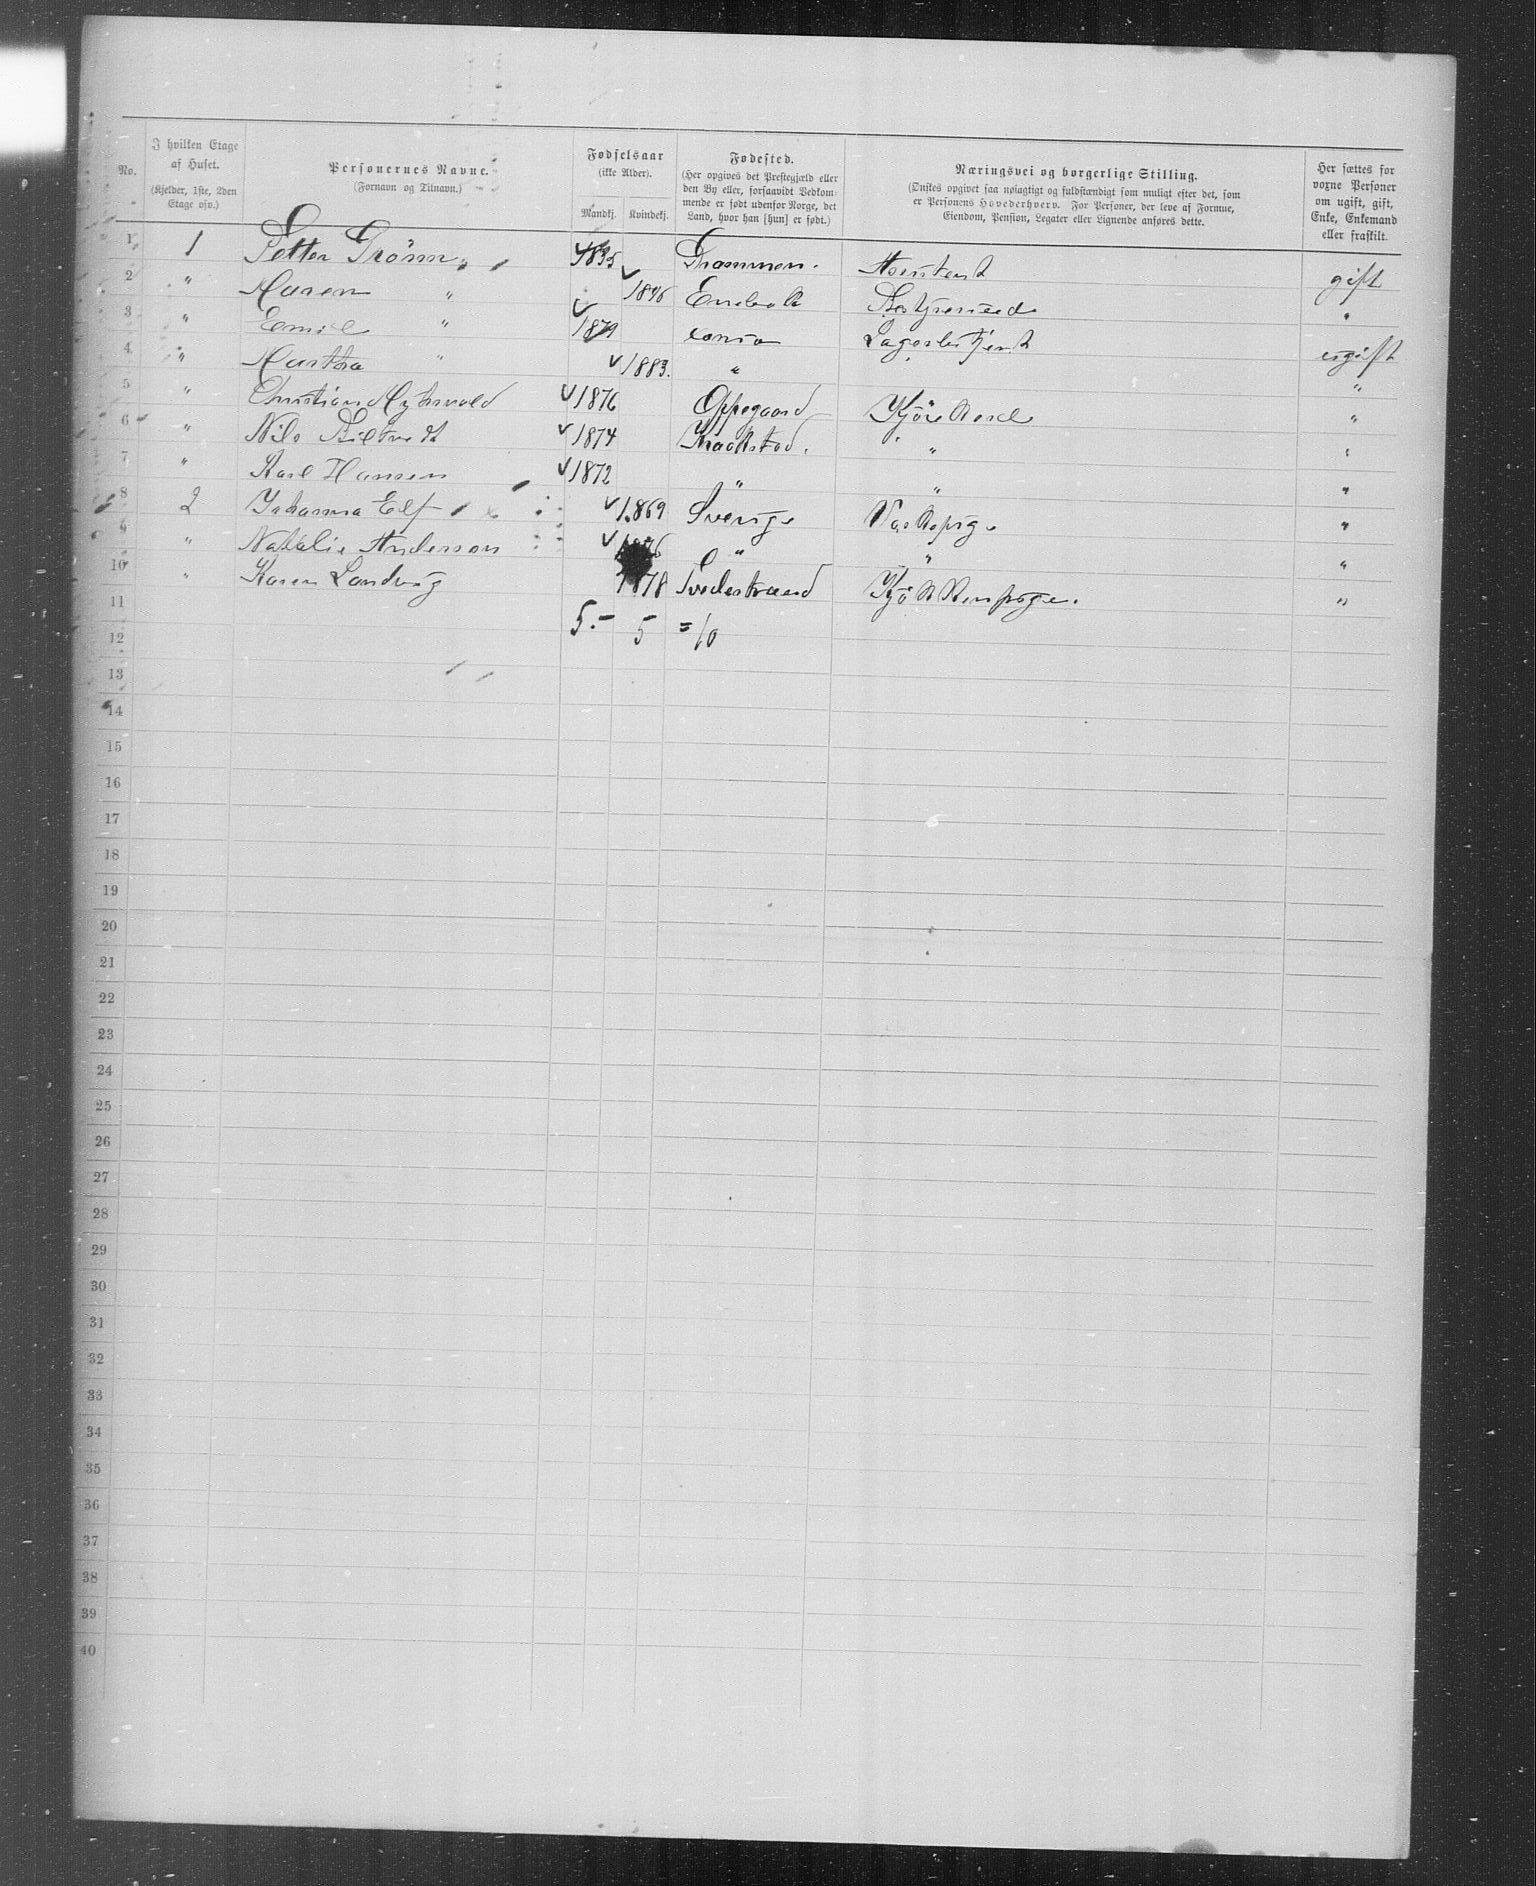 No. | I hvilken Etage af Huset. (Kjelder, 1ste, 2den Etage osv.) | Personernes Navne. (Fornavn og Tilnavn.) | Fødselsaar (ikke Alder). Mandkj. Kvindekj. | Fødested. (Her opgives det Prestegjæld eller den By eller, forsaavidt Vedkommende er født udenfor Norge, det Land, hvor han [hun] er født.) | Næringsvei og borgerlige Stilling. (Ønskes opgivet saa nøiagtigt og fuldstændigt som muligt efter det, som er Personens Hovederhverv. For Personer, der leve af Formue, Eiendom, Pension, Legater eller Lignende anføres dette. | Her sættes for voxne Personer om ugift, gift, Enke, Enkemand eller fraskilt.
1 1 Petter Grönn 1835 Drammen. Assistent gift
2 " Maren " 1846 Enebak "
3 " Emil " 1879 Lagerbetjent ugift
4 " Martha " 1883. " "
5 " Christian Myhrvold 1876 Oppegaard "
6 " Nils 1874 Kraakstad. " "
7 " Karl Hansen 1872 " " "
8 2 Johanna Elf 1869 Sverige Vaskepige "
9 " Natalie Anderson " " "
10 " Karen Landvig 1878 Tvedestrand Kjökkenpige. "
11 5.- 5 = 10
12
13
14
15
16
17
18
19
20
21
22
23
24
25
26
27
28
29
30
31
32
33
34
35
36
37
38
39
40